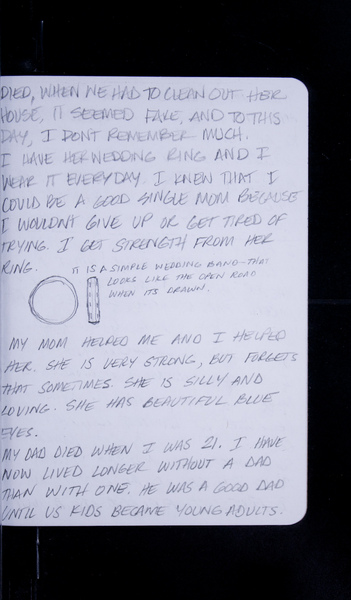 DIED, WHEN WE HAD TO CLEAN OUT HER
HOUSE, IT SEEMED FAKE, AND TO THIS
DAY, I DONT REMEMBER MUCH.
I HAVE HER WEDDING RING AND I
WEAR IT EVERYDAY. I KNEW THAT I
COULD BE A GOOD SINGLE MOM BECAUSE
I WOULDNT GIVE UP OR GET TIRED OF
TRYING. I GET STRENGTH FROM HER
RING.
IT IS A SIMPLE WEDDING BAND-THAT
LOOKS LIKE THE OPEN ROAD
WHEN ITS DRAWN.
MY MOM HELPED ME AND I HELPED
HER. SHE IS VERY STRONG, BUT FORGETS
THAT SOMETIMES. SHE IS SILLY AND
LOVING. SHE HAS BEAUTIFUL BLUE
EYES.
MY DAD DIED WHEN I WAS 21. I HAVE
NOW LIVED LONGER WITHOUT A DAD
THAN WITH ONE. HE WAS A GOOD DAD
UNTIL US KIDS BECAME YOUNG ADULTS.